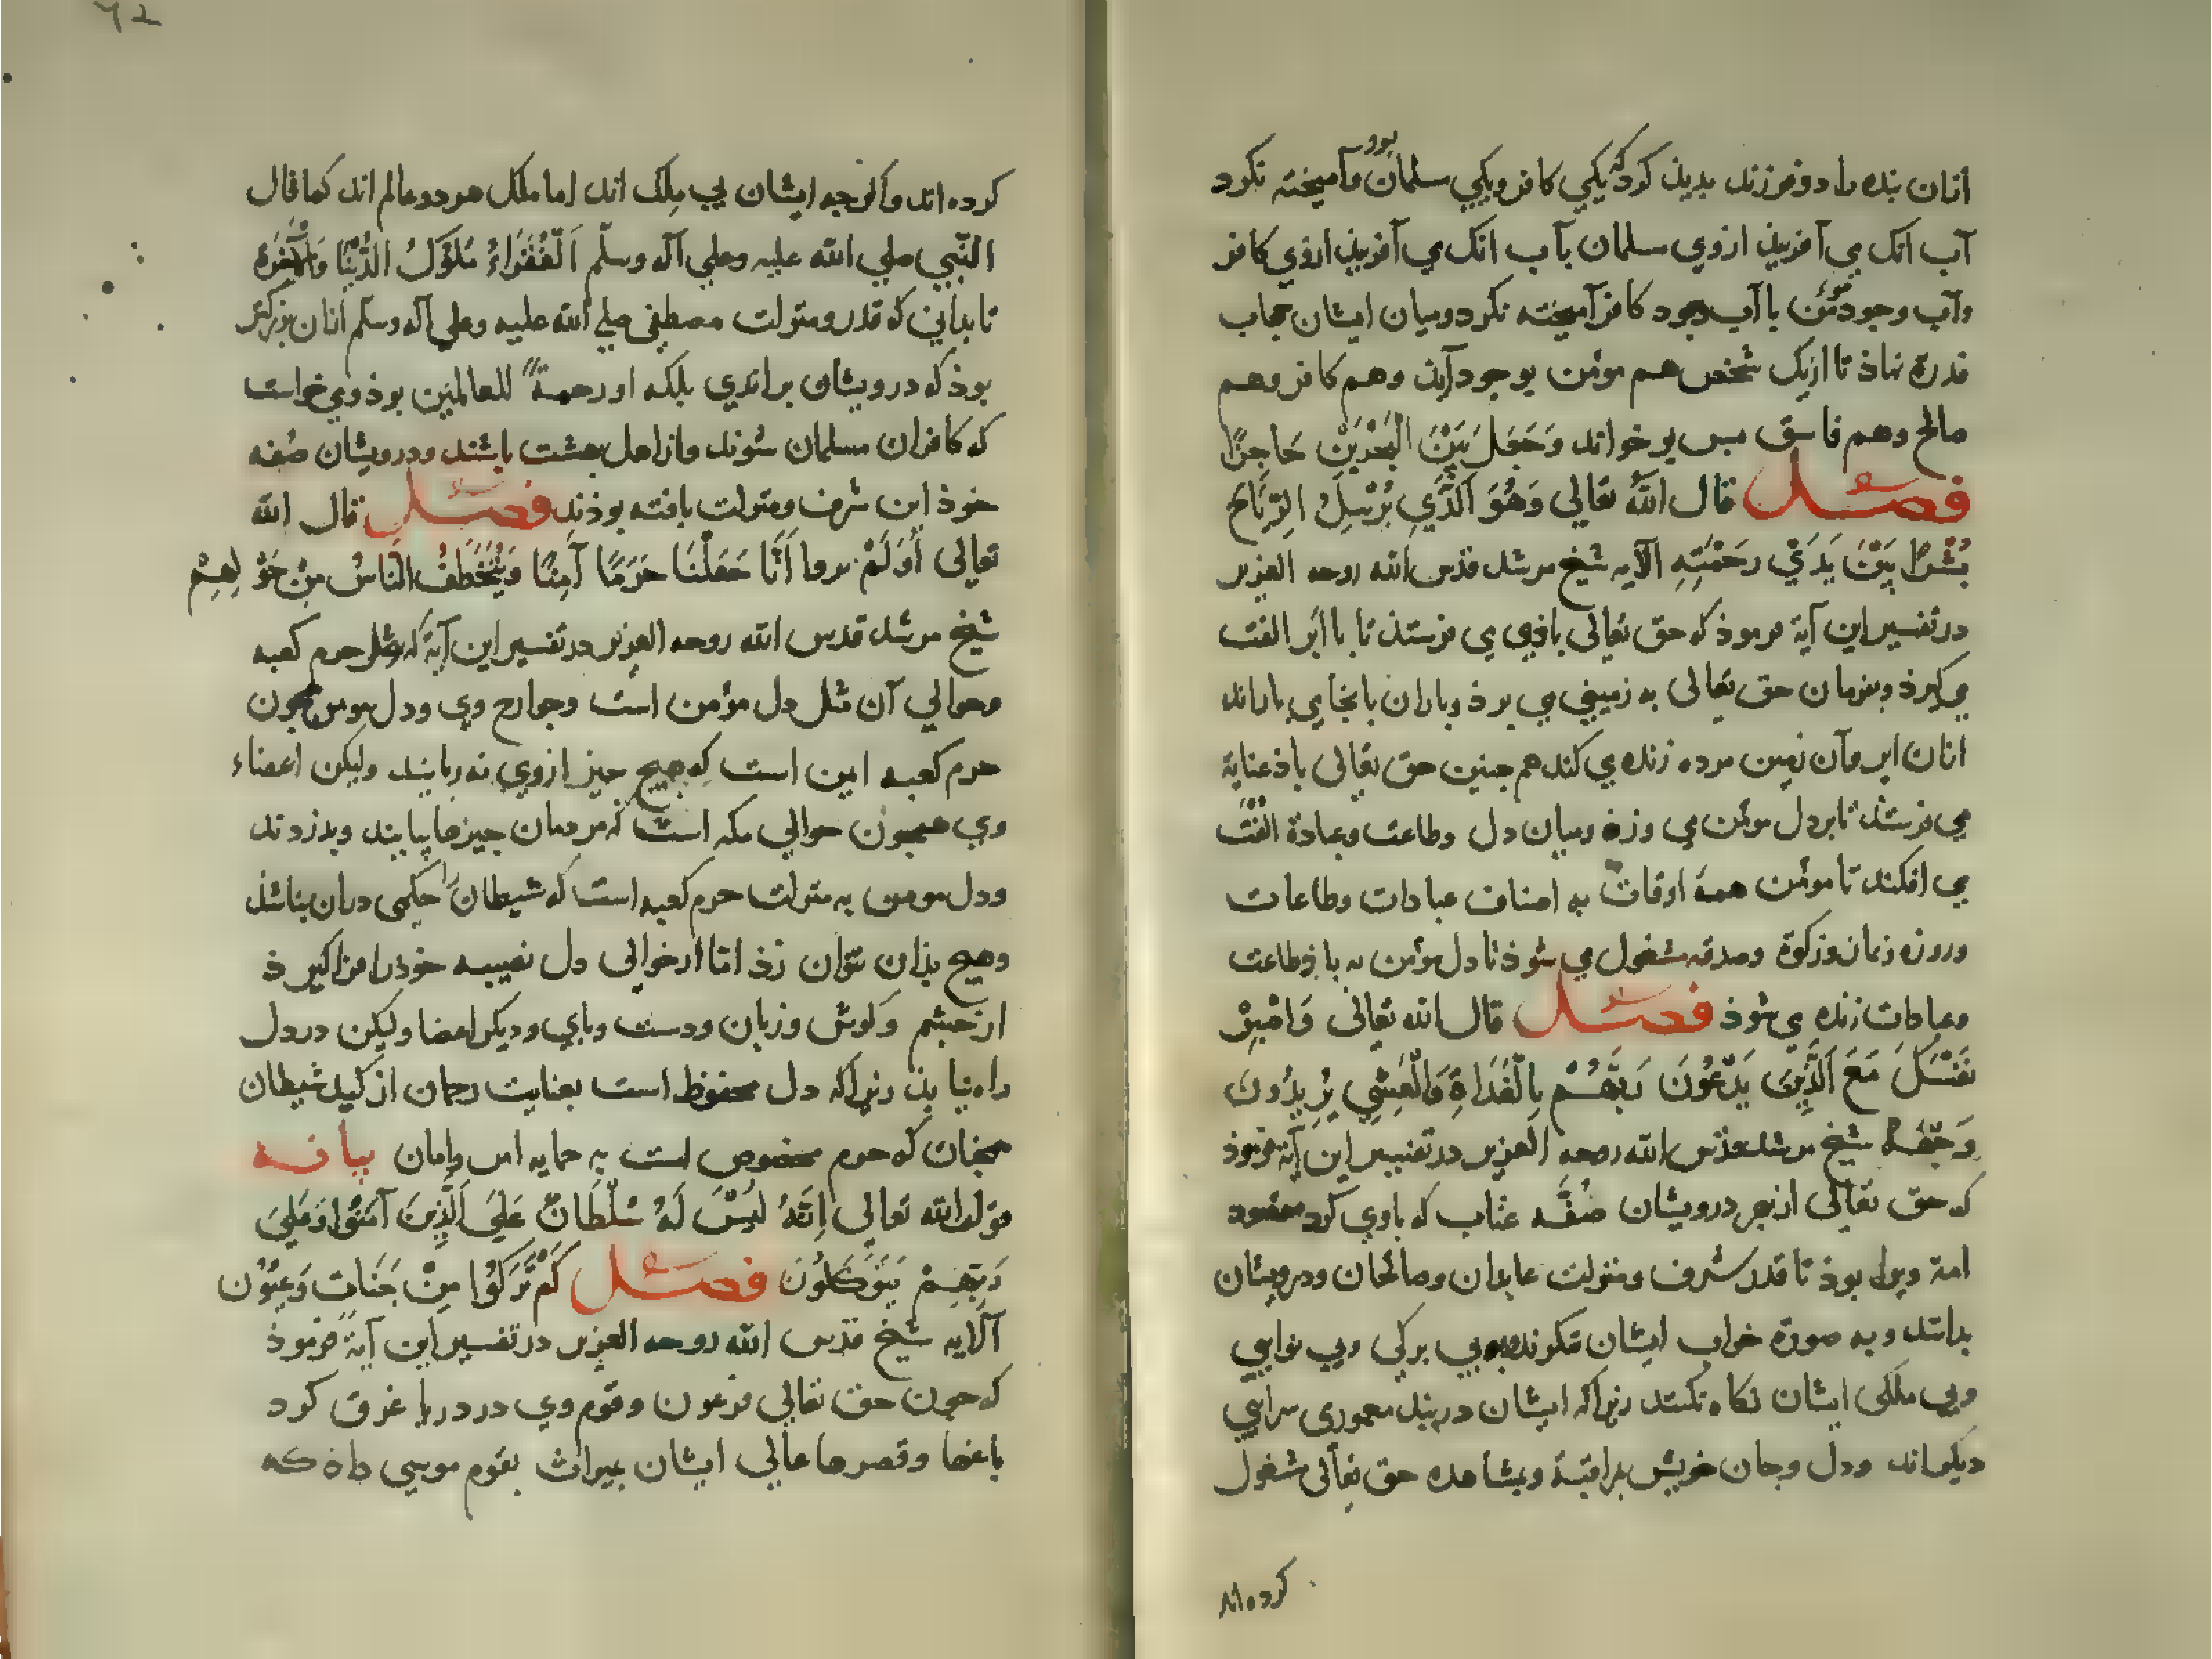 ازان بنده را دو فرزند بدید کرد که یکی کافر ویکی مسلمان بود وآمیخته نکرد
آب انک می آفریند ازوی مسلمان بآب انک می آفریند ازوی کافر
وآب وجود مؤمن با آب وجود کافر آمیخته نکرد ومیان ایشان حجاب
قدرة نهاذ تا ازیک شخص هم مؤمن بوجود آید وهم کافر وهم
صالح وهم فاسق پس برخواند وَجَعَلَ بَيْنَ الْبَحْرَيْنِ حَاجِزًا
فصل قال اللهُ تعالي وَهُوَ الَّذِي يُرْسِلُ الرِّيَاحَ
بُشْرًا بَيْنَ يَدَيْ رَحْمَتِهِ الآیه شیخ مرشد قدس الله روحه العزیز
در تفسیر این آیة فرموذ که حق تعالی باذی می فرستذ تا با ابر الفت
می کیرذ وبفرمان حق تعالی به زمینی می برذ وباران بانجا می باراند
ازان ابر وآن زمین مرده زنده می کند هم چنین حق تعالی باذ عنایة
می فرستذ تا بر دل مؤمن می وزذ ومیان دل وطاعت وعبادة الفت
می افکند تا مؤمن همه اوقات به اصناف عبادات وطاعات
وروزه ونماز وزکوة وصدقه مشغول می شوذ تا دل مؤمن به باذ طاعت
وعبادات زنده می شوذ فصل قال الله تعالی وَاصْبِرْ
نَفْسَكَ مَعَ الَّذِينَ يَدْعُونَ رَبَّهُمْ بِالْغَدَاةِ وَالْعَشِي يُرِيدُونَ
وَجْهَهُ شیخ مرشد قدس الله روحه العزیز در تفسیر این آیة فرموذ
که حق تعالی از بهر درویشان صُفَّه عتاب که باوی کرد مقصود
امة وی بوذ تا قدر شرف ومنزلت عابدان وصالحان ودرویشان
بدانند وبه صورة خراب ایشان ننکرند وبه بی برکی وبی نوایی
وبی ملکی ایشان نکاه نکنند زیراکه ایشان در بند معموری سرایی
دیکراند ودل وجان خویش بمراقبة ومشاهده حق تعالی مشغول
کرده اند
٦٢
کرده اند واکرچه ایشان بی مِلک اند اما ملک هر دو عالم اند کما قال
النّبي صلي الله علیه وعلي آله وسلّم اَلْفُقَرَاءُ مُلُوكُ الدُّنْيَا وَالْآخِرَةِ
تا بدانی که قدر ومنزلت مصطفی صلي الله علیه وعلي آله وسلم ازان بزرکتر
بوذ که درویشان براندي بلکه او رحمةً للعالمین بوذ ومی خواست
که کافران مسلمان شوند واز اهل بهشت باشند ودرویشان صُفه
خوذ این شرف ومنزلت یافته بوذند فصل قال الله
تعالی أَوَلَمْ يروا أَنَّا جَعَلْنَا حَرَمًا آمِنًا وَيُتَخَطَّفُ النَّاسُ مِنْ حَوْلِهِمْ
شیخ مرشد قدس الله روحه العزیز در تفسیر این آیة که مثل حرم کعبه
وحوالي آن مثل دل مؤمن است وجوارح وي ودل مومن همچون
حرم کعبه امین است که هیچ چیز ازوي نه ربایند ولیکن اعضاء
وي همچون حوالي مکه است که مردمان چیزها یابند وبدزدند
ودل مومن به منزلت حرم کعبه است که شیطان را حکمی دران نباشذ
وهیچ بذان نتوان زذ اما از حوالي دل نصیبه خوذرا فراکیرذ
از چشم وکوش وزبان ودست وپاي ودیکر اعضا ولیکن در دل
راه نیابذ زیراکه دل محفوظ است بعنایت رحمان از کید شیطان
همچنان که حرم مخصوص است به حمایه امن وامان بیانه
قوله الله تعالي إِنَّهُ لَيْسَ لَهُ سُلْطَانٌ عَلَى الَّذِينَ آمَنُوا وَعَلَى
رَبِّهِمْ يَتَوَكَّلُونَ فصل كَمْ تَرَكُوا مِنْ جَنَّاتٍ وَعُيُون
آلایه شیخ قدس الله روحه العزیز در تفسیر این آیة فرموذ
که چون حق تعالی فرعون وقوم وي در دریا غرق کرد
باغها وقصرها عالي ایشان بمیراث بقوم موسی داذ که